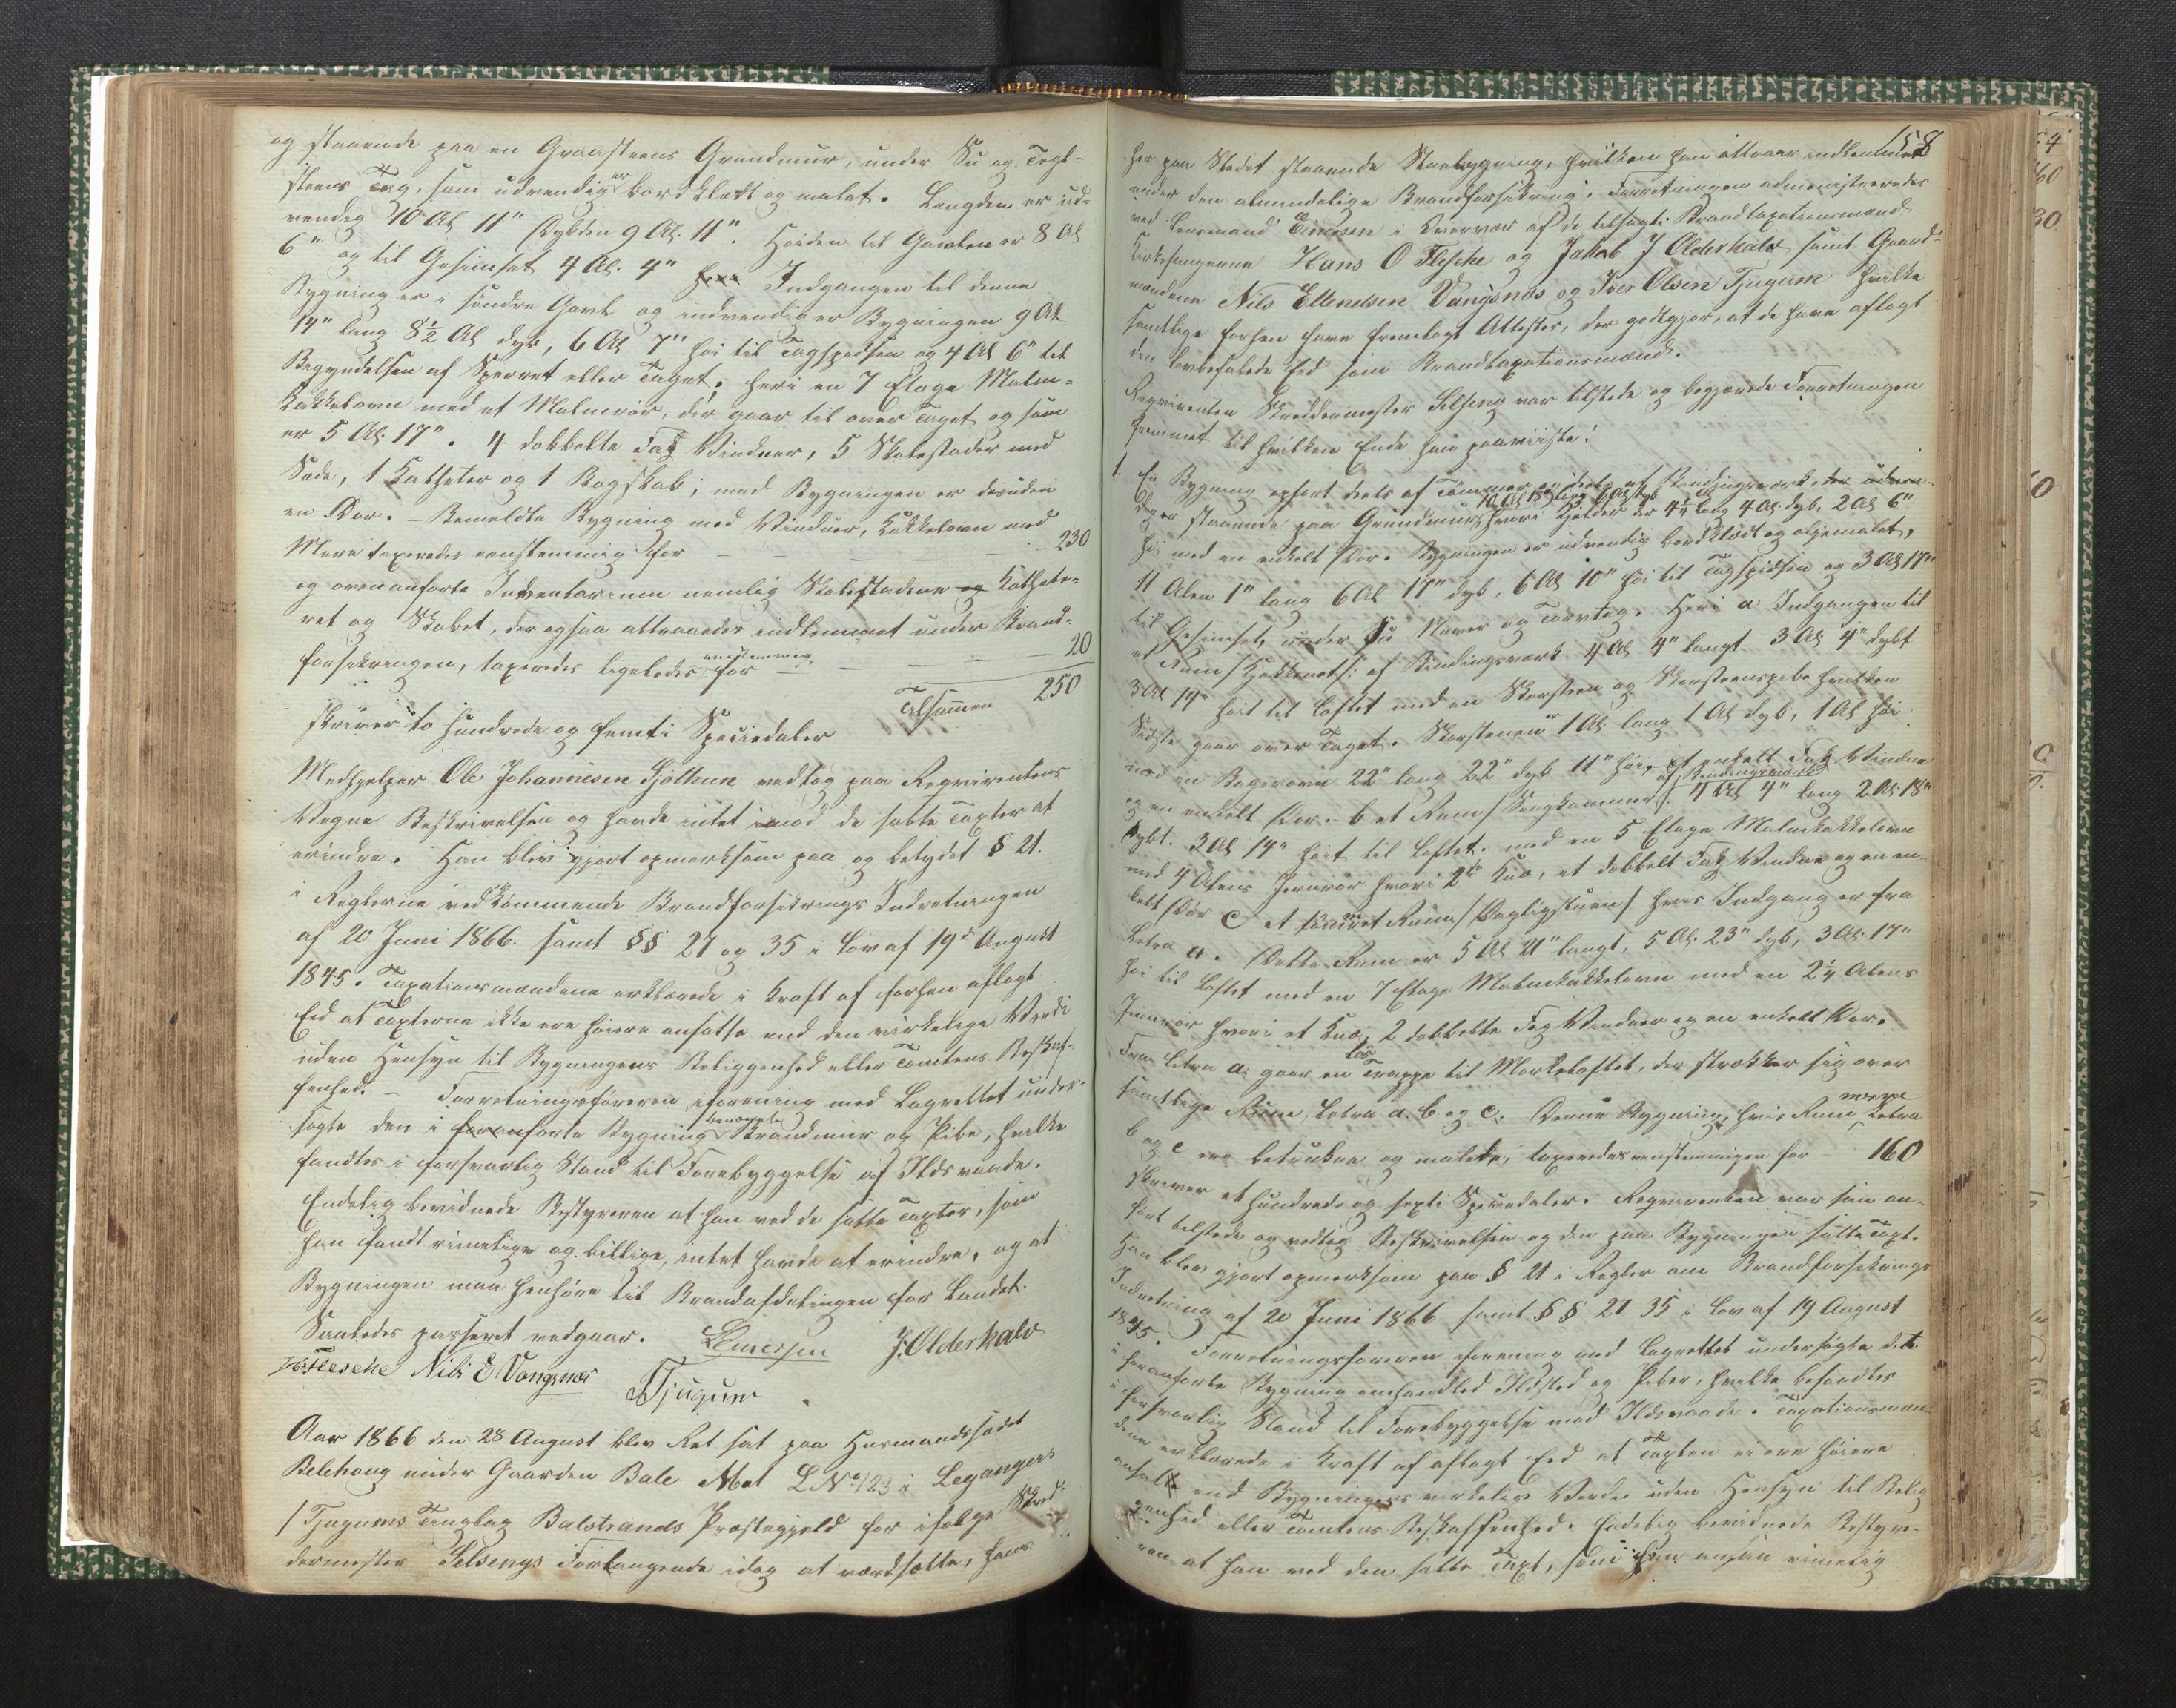 og staaende paa en Graasteens Grundmuur, under Su og Tegl-
steens Tag, som udvendig er bordklædt og malet. Længden er ud-
vendig 10 Al 11" Dybden 9 Al. 11". Høiden til Gavlen er 8 Al
6" og til Gesimset 4 Al. 4" Indgangen til denne
Bygning er i søndre Gavl og indvendig er Bygningen 9 Al
14" lang 8½ Al dyb, 6 Al 7" høi til Tagspidsen og 4 Al 6" til
Begyndelsen af Sperret eller Taget; heri en 7 Etage Malm-
kakkelovn med et Malmrør, der gaar til over Taget og som
er 5 Al. 17". 4 dobbelte Fag Vinduer, 5 Skolestader med
Sæde, 1 Katheter og 1 Bogskab; med Bygningen er desuden
en Dør. - Bemeldte Bygning med Vinduer, Kakkelovn med
Mere taxeredes eenstemmig for - - - - 230
og ovenanførte Inventarium nemlig Skolestaderne og Kathete-
ret og Skabet, der ogsaa attraaedes indlemmet under Brand-
forsikringen, taxeredes ligeledes eenstemmig for - - - 20
Tilsammen 250
skriver to hundrede og femti Speciedaler
Medhjelper Ole Johannesen Sjøthun vedtog paa Reqvirentens
Vegne Beskrivelsen og havde intet imod de satte Taxter at
erindre. Han blev gjort opmerksom paa og betydet § 21.
i Reglerne vedkommende Brandforsikrings Indretningen
af 20 Juni 1866. samt §§ 27 og 35 i Lov af 19de August
1845. Taxationsmændene erklærede i Kraft af forhen aflagt
Eed at Taxterne ikke ere høiere ansatte end den virkelige Verdi
uden Hensyn til Bygningens Beliggenhed eller Tomtens Beskaf-
fenhed. - Forretningsføreren iforening med Lagrettet under-
søgte den i foranførte Bygning benævnte Brandmuur og Pibe, hvilke
fandtes i forsvarlig Stand til Forebyggelse af Ildsvaade.
Endelig bevidnede Bestyreren at han ved de satte Taxter, som
han fandt rimelige og billige, intet havde at erindre, og at
Bygningen maa henføres til Brandafdelingen for Landet.
Saaledes passeret vedgaar. LEinersen J. Olderkalv
HFlesche Nils E Vangsnæs
Tjugum
Aar 1866 den 28 August blev Ret sat paa Huusmandssædet
Belehaug under Gaarden Bale Mat L No 123 i Leganger
/Tjugums Tinglag Balestrands Præstegjeld for ifølge Skræd-
dermester Selsengs Forlangende idag at værdsætte, hans
158
her paa Stedet staaende Stuebygning, hvilken han attraar indlemmet
under den almindelige Brandforsikring. Forretningen administreredes
ved Lensmand Einersen i Overvær af de tilsagte Brandtaxationsmænd
Kirkesangerne Hans O Flesche og Jakob J Olderkalv samt Gaard-
mændene Nils Ellendsen Vangsnæs og Iver Olsen Tjugum hvilke
samtlige forhen have fremlagt Attester, der godtgjør, at de have aflagt
den lovbefalede Eed som Brandtaxationsmænd.
Reqvirenten Skreddermester Selseng var tilstede og begjærede Forretningen
fremmet til hvilken Ende han paaviiste:
1. En Bygning opført deels af Tømmer og deels af Bindingsværk,
staaende paa Grundmuur, hvori Kjelder der 4¼ Al lang 4 Al. dyb, 2 Al 6"
høi med en enkelt Dør. Bygningen er udvendig bordklædt og oljemalet,
11 Alen 1" lang 6 Al 17" dyb, 6 Al 10" høi til Tagspidsen og 3 Al 17"
til Gesimset, under Su Næver og Torvtag. Heri a Indgangen til
et Rum /:Kjøkkenet:/ af Bindingsværk 4 Al 4" langt 3 Al 4" dybt
3 Al 14" høit til Loftet med en Skorsteen og Skorsteenspibe hvilken
Sidste gaar over Taget. Skorstenen er 1 Al. lang 1 Al dyb, 1 Al høi
med en Bagerovn 22" lang 22" dyb 11" høi, et enkelt Fag Vindue
og en enkelt Dør. - b et Rum /Sengkammer/ af Bindingsværk 4 Al 4" lang 2 Al. 18"
dybt. 3 Al 14" høit til Loftet. med en 5 Etage Malmkakkelovn
med 4 Alens Jernrør hvori 2de Knæ, et dobbelt Fag Vindue og en en-
kelt Dør c et tømret Rum /Dagligstuen/ hvis Indgang er fra
Letra a. Dette Rum er 5 Al 21" langt, 5 Al. 23" dyb, 3 Al. 17"
høi til Loftet med en 7 Etage Malmkakkelovn med en 2¼ Alens
Jernrør hvori et Knæ, 2 dobbelte Fag Vinduer og en enkelt Dør.
Fra Letra a. gaar en løs Trappe til Mørkeloftet, der strækker sig over
samtlige Rum, Letra a. b og c. Denne Bygning, hvis Rum Letra
b og c ere betrukne og malede, taxeredes eenstemmigen for 160
skriver et hundrede og sexti Speciedaler. Reqvirenten var som an-
ført tilstede og vedtog Beskrivelsen og den paa Bygningen satte Taxt.
Han blev gjort opmerksom paa § 21 i Regler om Brandforsikrings
Indretning af 20 Juni 1866 samt §§ 27 35 i Lov af 19 August
1845. Forretningsføreren iforening med Lagrettet undersøgte det
i foranførte Bygning omhandled Ildsted og Piber, hvilke befandtes
i forsvarlig Stand til Forebyggelse mod Ildsvaade. Taxationsmæn
dene erklærede i Kraft af aflagt Eed at Taxten ei ere høiere
ansatt end Bygningens virkelige Verdie uden Hensyn til Belig
genhed eller Tomtens Beskaffenhed. Endelig bevidnede Bestyre-
ren at han ved den satte Taxt, som han ansaa rimelig